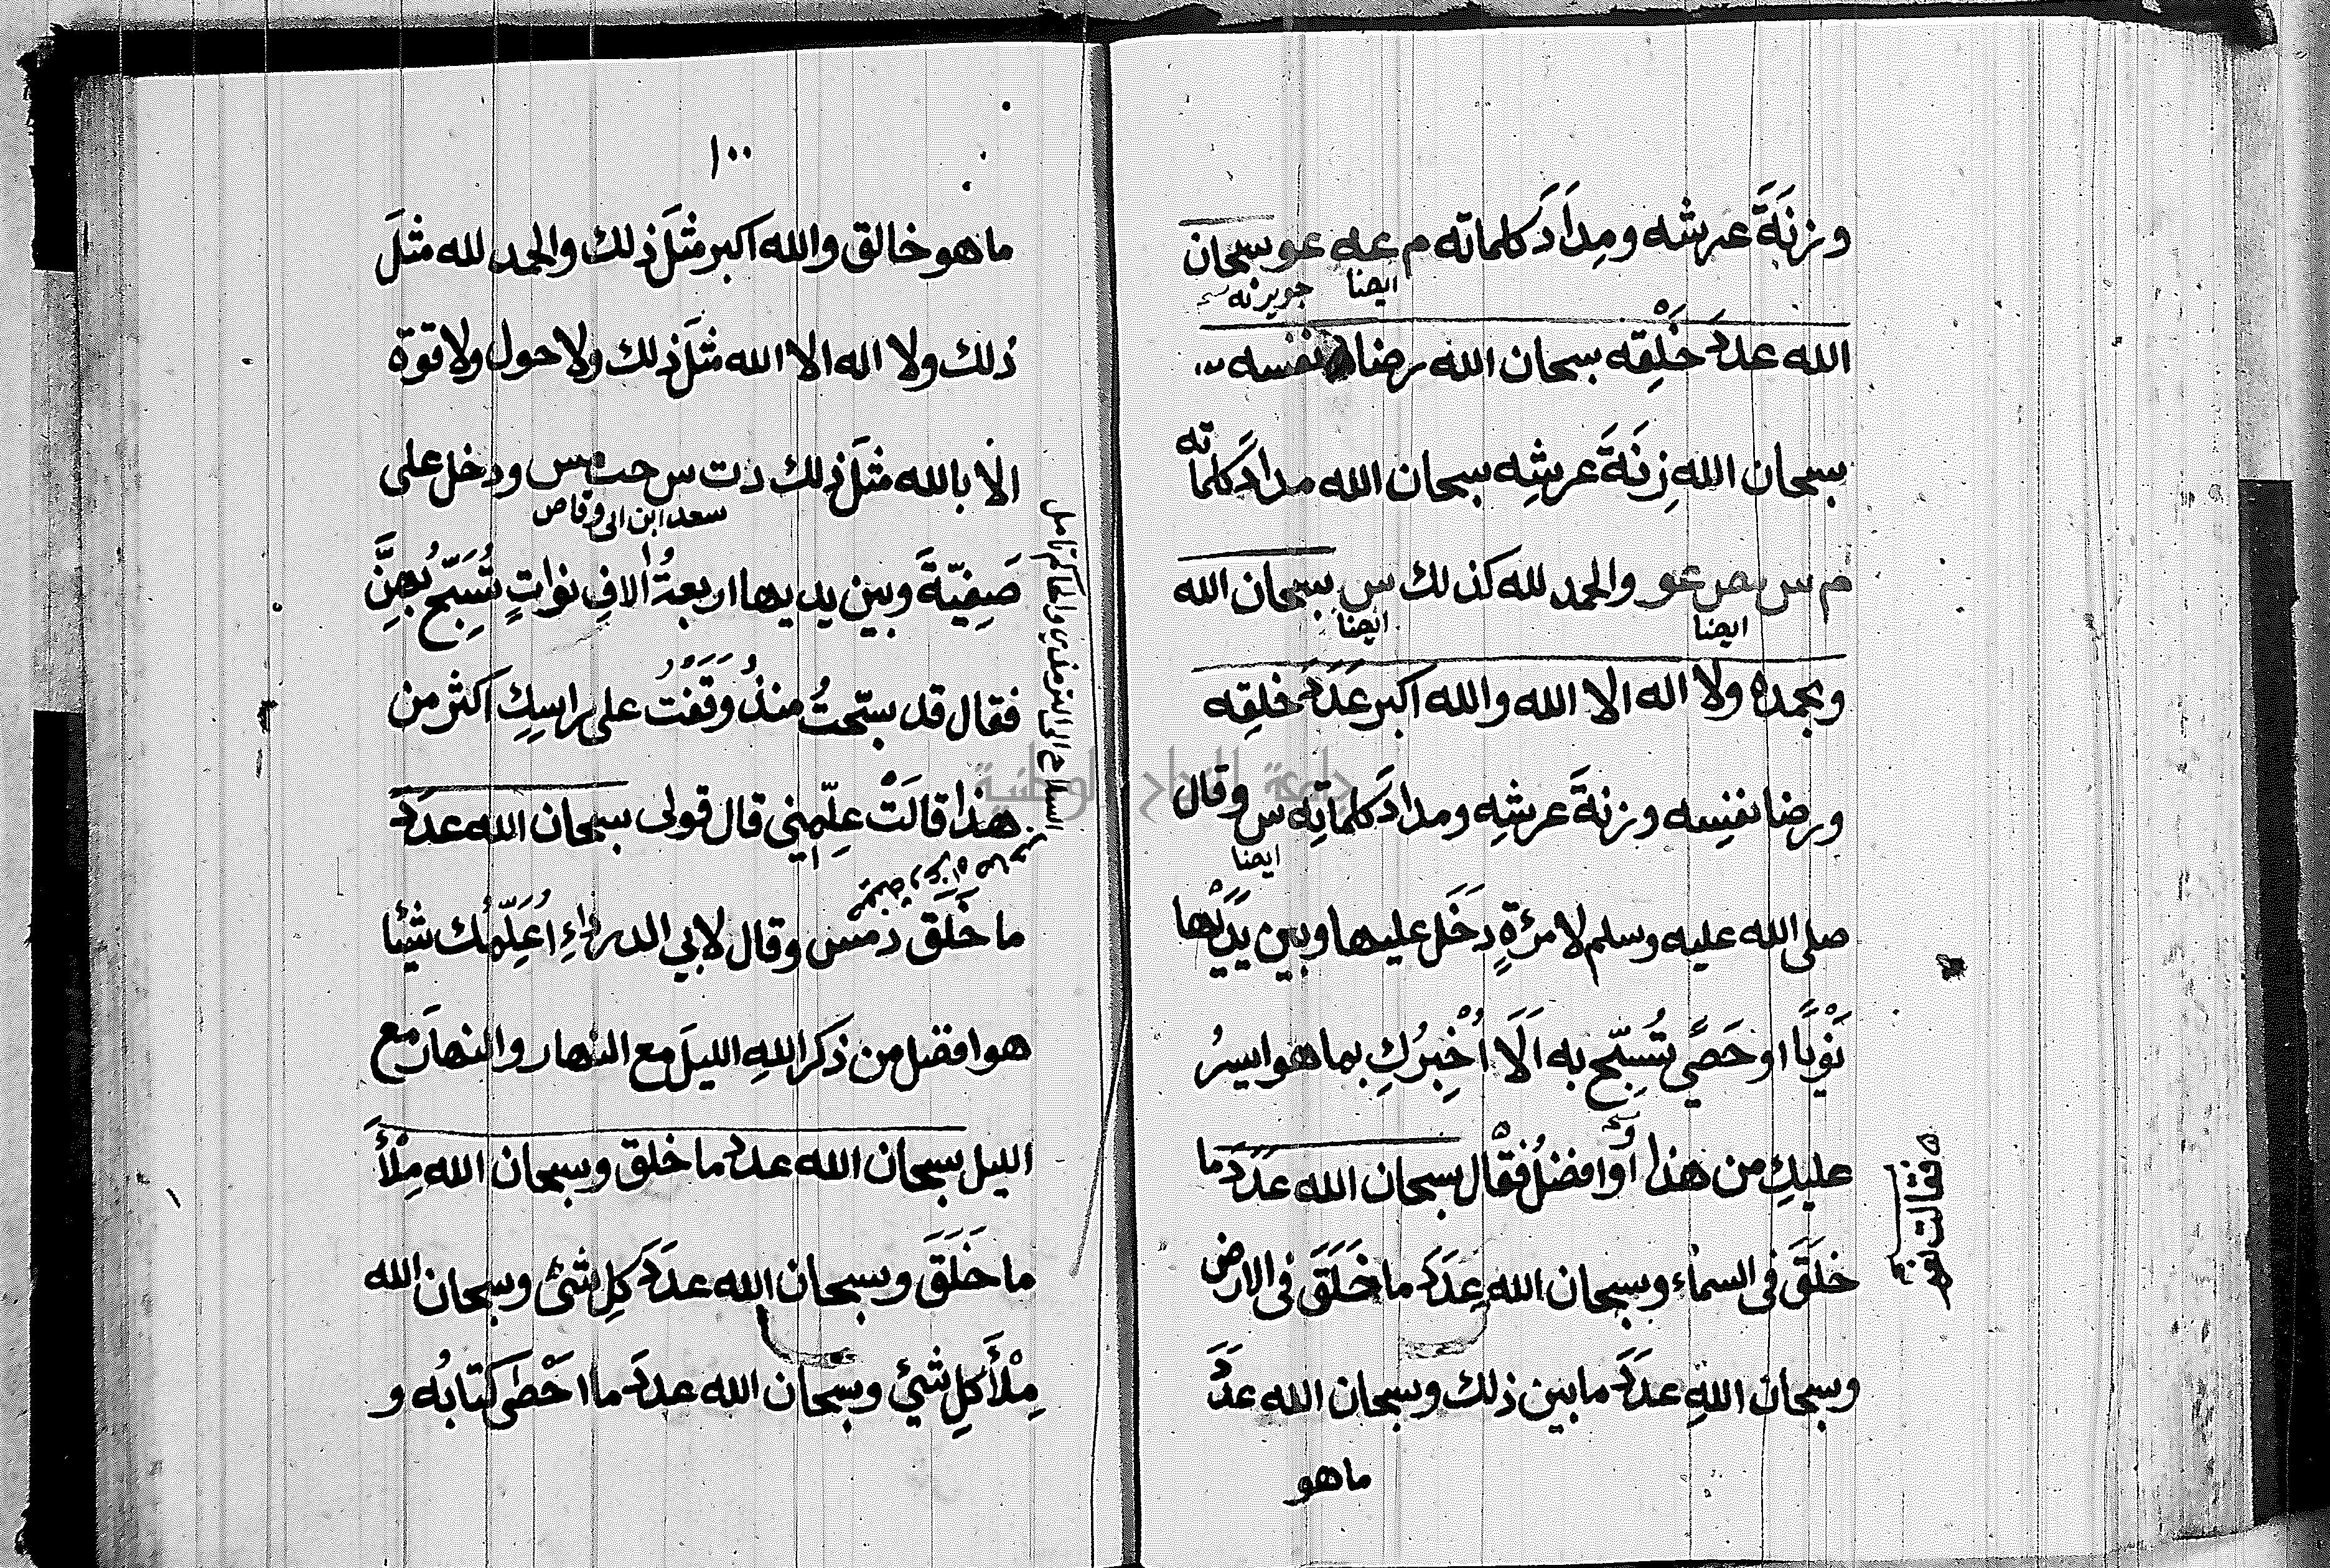 وزِنَةَ عرشه ومِدَادَ كلماته م عه عو سبحان
ايضا جويرية
الله عددَ خَلْقِه سبحان الله رضا نفسه
سبحان اللهِ زِنَةَ عرشِه سبحان الله مدادَ كلماته
م س مص عو والحمد لله كذلك س سبحان الله
ايضا ايضا
وبحمده ولا اله الا الله والله اكبر عَدَدَ خلقِه
ورضا نفسِه وزنةَ عرشِه ومدادَ كلماتِه س وقال
ايضا
صلى الله عليه وسلم لامرءةٍ دَخَل عليها وبين يَدَيْها
نَوًى او حَصًى تُسَبِّح به اَلَا اُخْبِرُكِ بما هو ايسرُ
عليكِ من هذا او افضلُ فقال سبحان الله عَدَدَ ما
خلَقَ فى السماء وسبحان الله عدَدَ ما خَلَقَ فى الارض
وسبحان اللهِ عدَدَ ما بين ذلك وسبحان الله عدَدَ
ما هو
فقالت نعم
١٠٠
ما هو خالق والله اكبر مثلَ ذلك والحمد لله مثلَ
ذلك ولا اله الا الله مثلَ ذلك ولا حول ولا قوة
الا بالله مثلَ ذلك دت س حب مس ودخل على
سعد ابن ابى وقاص
صَفِيّةَ وبين يديها اربعةُ الافِ نواتٍ تُسَبِّحُ بهنَّ
فقال قد سبّحتُ منذُ وَقَفتُ على راسِكِ اكثر من
هذا قالَتْ علِّمنِي قال قولى سبحان الله عدَدَ
ما خَلَقَ د مس وقال لابي الدرداءِ اُعَلِّمُك شيْئا
هو افضل من ذكر اللهِ الليلَ مع النهار والنهارَ مع
الليل سبحان الله عددَ ما خلق وسبحان الله مِلْأَ
ما خَلَقَ وسبحان الله عدَدَ كلِ شئ وسبحان الله
مِلْأَ كلِ شئٍ وسبحان الله عددَ ما احْصٰى كتابُه و